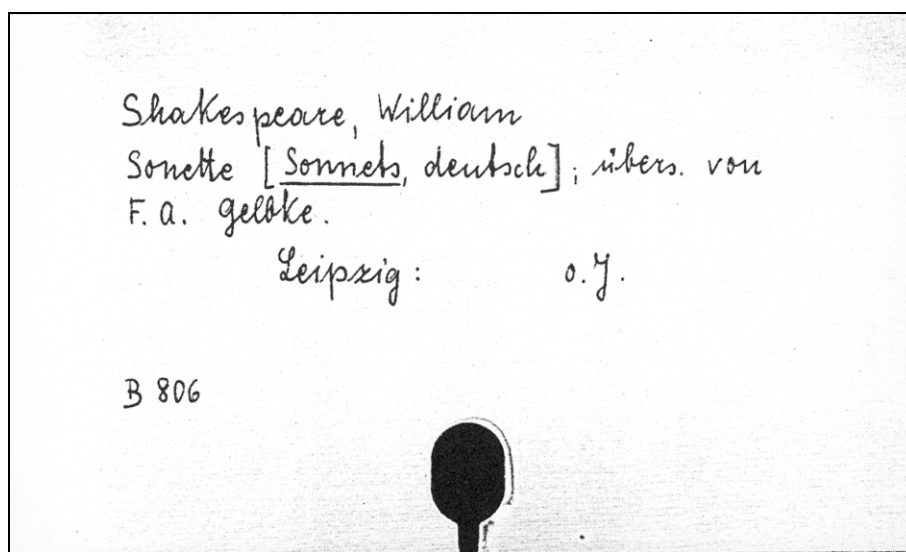 Shakespeare, William
Sonette [Sonnets, deutsch]; übers. von
F. A. Gelbke.
Leipzig: o. J.
B 806